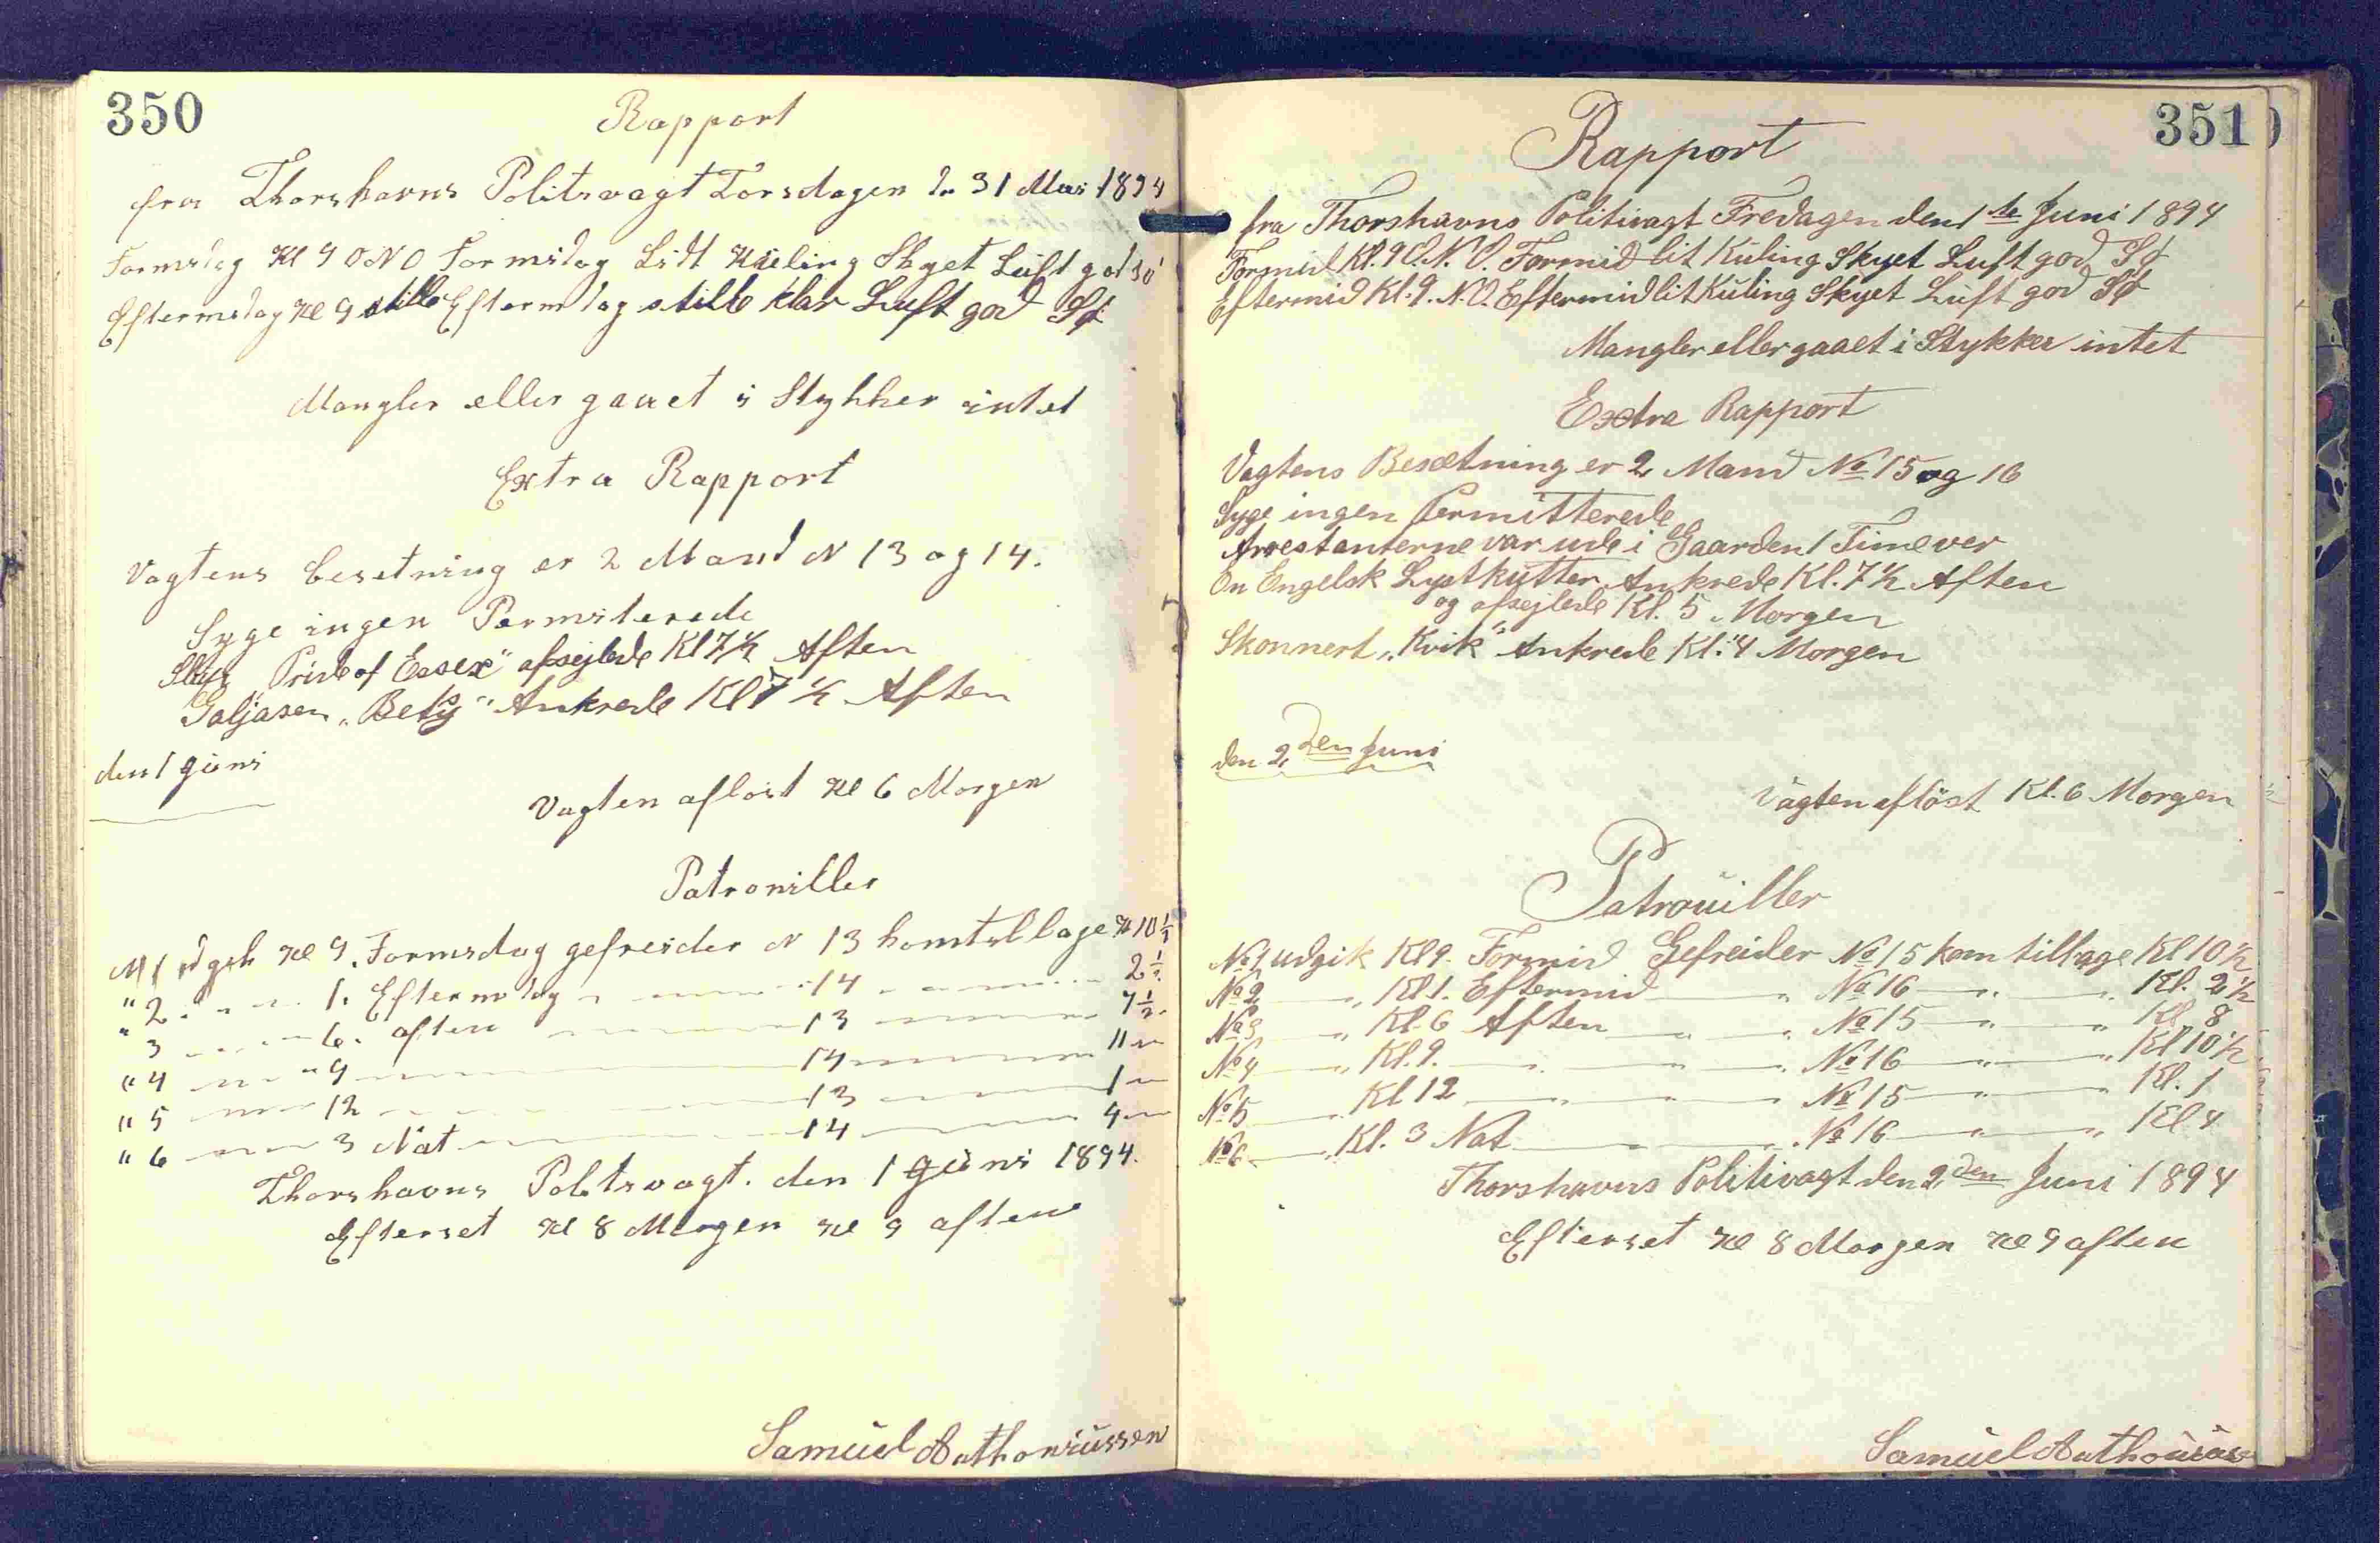 350
Rapport
fra Thorshavns Politsvagt Torsdagen d. 31 Mai 1894
Formidag Kl 9 ONO Formidag Lidt Kuling Skyet Luft god Sø
Eftermidag Kl 9 stille Eftermdag stille klar Luft god Sø
Mangler eller gaaet i Stykker intet
Extra Rapport
Vagtens besetning er 2 Mand N 13 og 14.
Syge ingen Permiterede
Slup "Pride of Essex" afsejlede Kl 7 1/2 Aften
Galjasen "Bety" Ankrede Kl 7 1/2 Aften
den 1 Juni
Vagten afløst Kl 6 Morgen
Patroniller
N 1 udgik Kl 9. Formidag gefreider N 13 komtillage Kl 10 1/2
" 2 1. Eftermdag 14 2 1/2
" 3 6. aften 13 7 1/2
" 4 " 9 14 11
" 5 12 13 1
" 6 3 Nat 14 4
Thorshavns Politsvagt. den 1 Juni 1894.
Efterset Kl 8 Morgen Kl 9 aften
Samuel Anthoniussen
351
Rapport
fra Thorshavns Politivagt Fredagen den 1ste Juni 1894
Formid Kl. 9 O.N.O. Formid lit Kuling Skyet Luft god Sø
Eftermid Kl. 9. N.O. Eftermid lit Kuling Skyet Luft god Sø
Mangler eller gaaet i Stykker intet
Extra Rapport
Vagtens Besætning er 2 Mand No 15 og 16
Syge ingen Permitterede
Arrestanterne var ude i Gaarden 1 Time ver
En Engelsk Lystkutter Ankrede Kl. 7 1/2 Aften
og afsejlede Kl. 5 Morgen
Skonnert "Kvik" Ankrede Kl. 4 Morgen
den 2den Juni
Vagten afløst Kl. 6 Morgen
Patrouiller
No 1 udgik Kl 9. Formid Gefreider No 15 kom tilbage Kl 10 1/2
No 2 " Kl 1. Eftermid " No 16 " " Kl. 2 1/2
No 3 " Kl. 6 Aften " " No 15 " " Kl 8
No 4 " Kl. 9. " " No 16 " " Kl 10 1/2
No 5 " Kl 12 " " No 15 " " Kl. 1
No 6 " Kl. 3 Nat " " No 16 " " Kl 4
Thorshavns Politivagt den 2den Juni 1894
Efterset Kl 8 Morgen Kl 9 aften
Samuel Anthoniussen